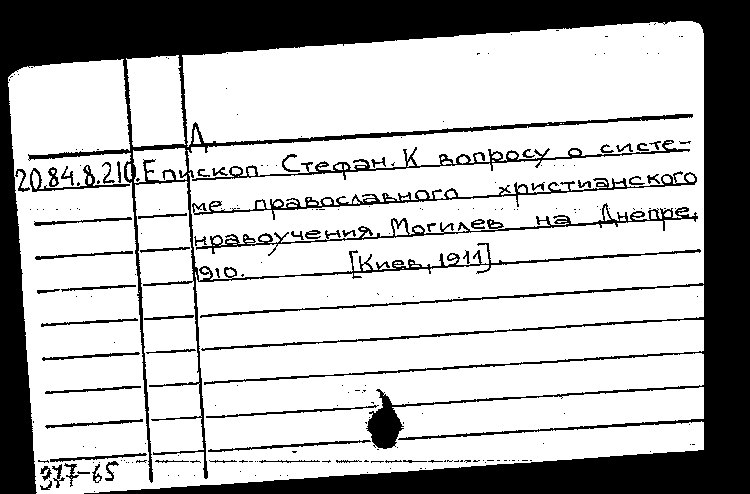 Д.
20.84.8.210. Епископ Стефан. К вопросу о систе-
ме православного христианского
нравоучения. Могилев на Днепре,
1910. [Киев, 1911].
377-65